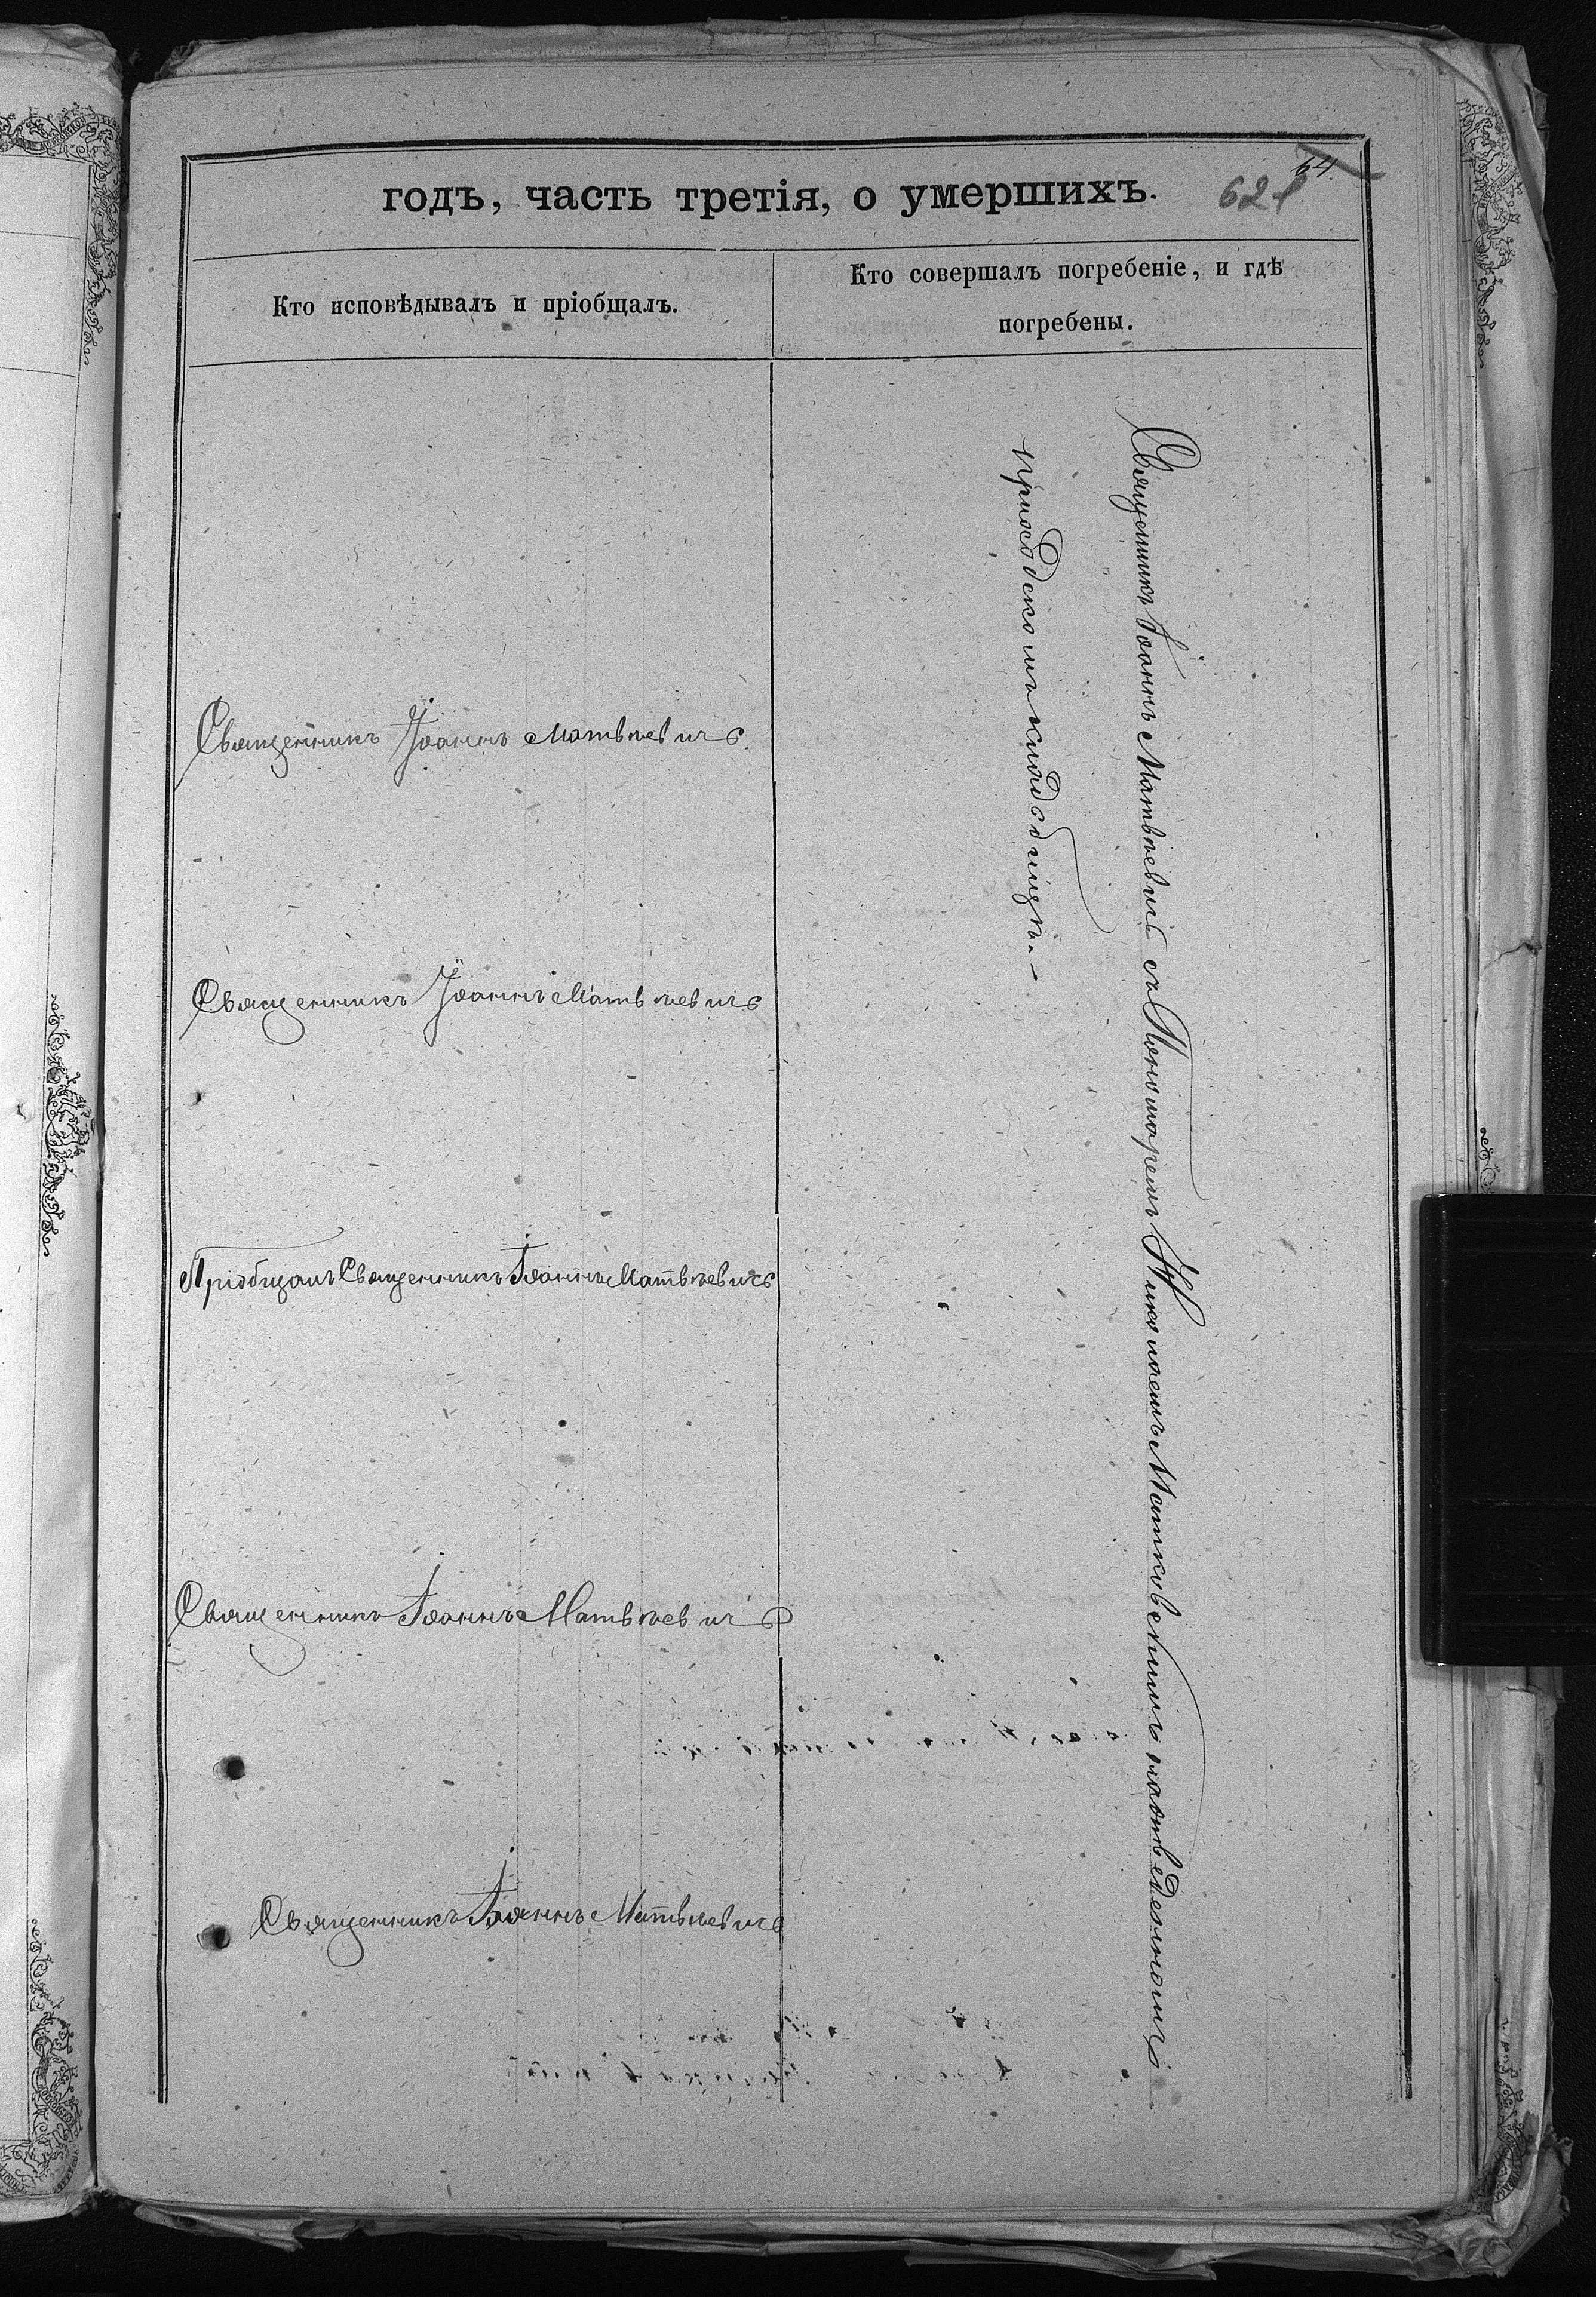 годъ, часть третія, о умершихъ.
64.
621
Кто исповѣдывалъ и пріобщалъ.
Кто совершалъ погребеніе, и гдѣ
погребены.
Священникъ Іоаннъ Матвѣевичъ
Священникъ Іоаннъ Матвѣевичъ
Пріобщалъ Священникъ Іоаннъ Матвѣевичъ
Священникъ Іоаннъ Матвѣевичъ
Священникъ Іоаннъ Матвѣевичъ
Священникъ Іоаннъ Матвѣевичъ съ Пономаремъ Николаемъ
приходскомъ кладбищѣ. -